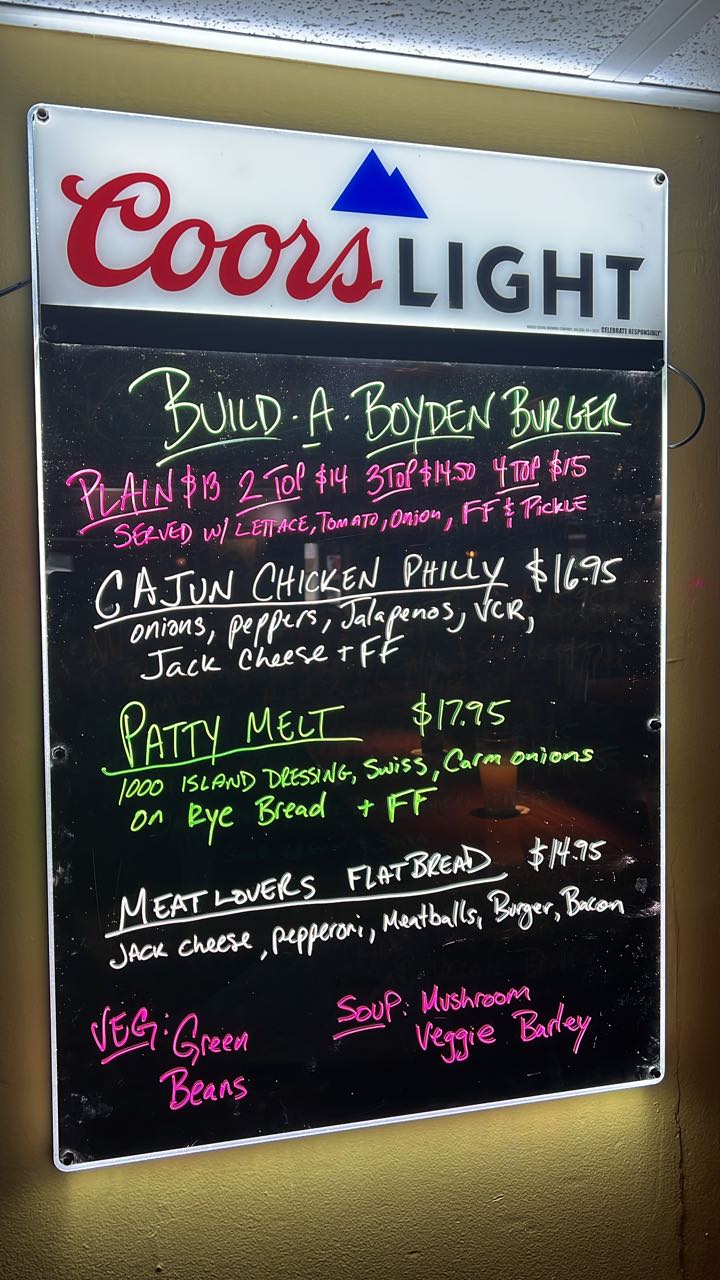 Coors LIGHT
CELEBRATE RESPONSIBLY®
BUILD · A · BOYDEN BURGER
PLAIN $13 2 TOP $14 3 TOP $14.50 4 TOP $15
SERVED W/ LETTACE, TOMATO, ONION, FF & PICKLE
CAJUN CHICKEN PHILLY $16.95
onions, peppers, Jalapenos, VCR,
Jack Cheese + FF
PATTY MELT $17.95
1000 ISLAND DRESSING, Swiss, Carm onions
on Rye Bread + FF
MEATLOVERS FLATBREAD $14.95
JACK cheese, pepperoni, Meatballs, Burger, Bacon
VEG: Green
Beans
SOUP: Mushroom
Veggie Barley